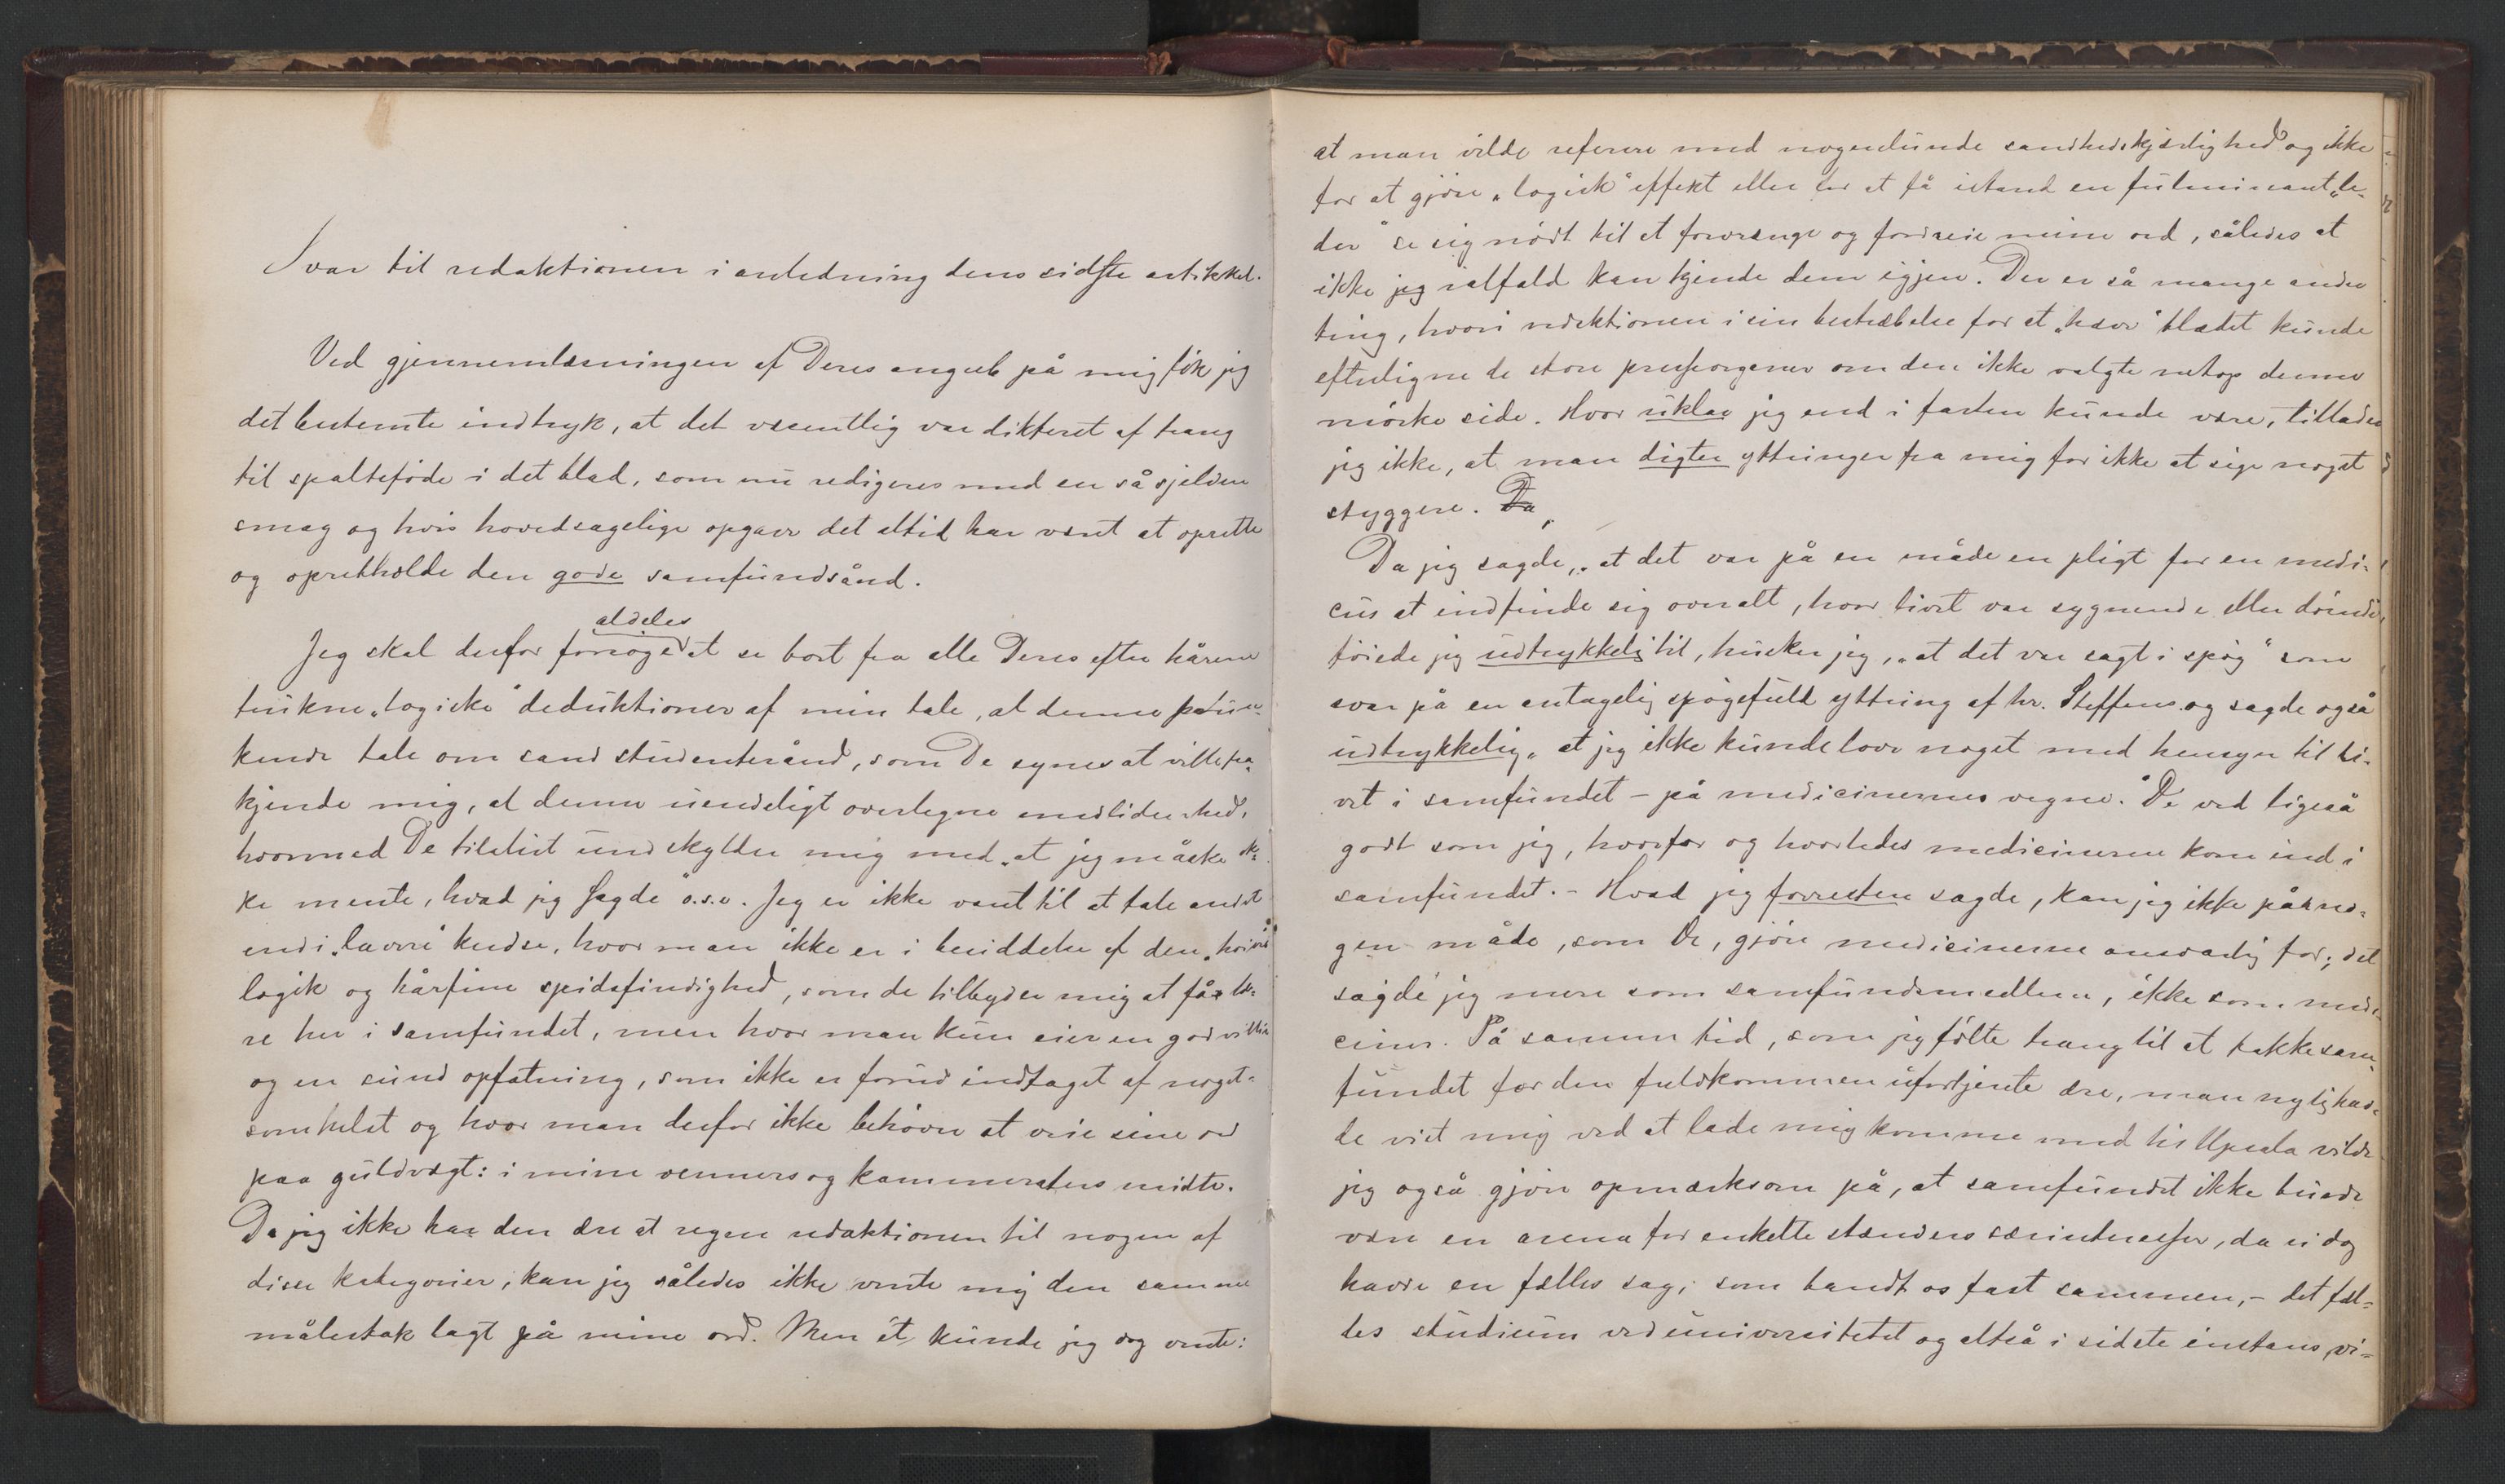 Svar til redaktionen i anledning dens sidste artikkel.
Ved gjennemlæsningen af Deres angreb på mig fik jeg
det bestemte indtryk, at det væsentlig var dikteret af trang
til spalteføde i det blad, som nu redigeres med en så sjelden
smag og hvis hovedsagelige opgave det altid har været at oprette
og opretholde den gode samfundsånd.
aldeles
Jeg skal derfor forsøge at se bort fra alle Deres efter hårene
trukne „logiske“ deduktioner af min tale, al denne
kende tale om sand studenterånd, som De synes at ville fra-
kjende mig, al denne uendeligt overlegne medlidenhed,
hvormed De tilsidst undskylder mig med „at jeg måske ik-
ke mente, hvad jeg sagde“ o.s.v. Jeg er ikke vant til at tale andet
end i „lavere“ kredse, hvor man ikke er i besiddelse af den „høiere“
logik og hårfine spidsfindighed, som de tilbyder mig at få læ-
re her i samfundet, men hvor man kun eier en god villie
og en sund opfatning, som ikke er forud indtaget af noget-
somhelst og hvor man derfor ikke behøver at veie sine ord
paa guldvægt: i mine venners og kammeraters midte.
Da jeg ikke har den ære at regne redaktionen til nogen af
disse kategorier, kan jeg således ikke vente mig den samme
målestok lagt på mine ord. Men ét kunde jeg dog vente:
at man vilde referere med nogenlunde sandhedskjærlighed og ikke
for at gjøre „logisk“ effekt eller for at få istand en fulminant „le-
der“ se sig nødt til at forvrænge og fordreie mine ord, således at
ikke jeg ialfald kan kjende dem igjen. Der er så mange andre
ting, hvori redaktionen i sin bestræbelse for at „hæve“ bladet kunde
efterligne de store presseorganer om den ikke valgte netop denne
mørke side. Hvor uklar jeg end i farten kunde være, tillader
jeg ikke, at man digter yttringer fra mig for ikke at sige noget
styggere. Da
Da jeg sagde, „at det var på en måde en pligt for en medi-
cus at indfinde sig overalt, hvor livet var sygnende eller døende,
føiede jeg udtrykkelig til, husker jeg, „at det var sagt i spøg“ som
svar på en antagelig spøgefuld yttring af hr. Steffens og sagde også
udtrykkelig „at jeg ikke kunde love noget med hensyn til li-
vet i samfundet – på medicinernes vegne.“ De ved ligeså
godt som jeg, hvorfor og hvorledes medicinerne kom ind i
samfundet. – Hvad jeg forresten sagde, kan jeg ikke på no-
gen måde, som De, gjøre medicinerne ansvarlig for; det
sagde jeg mere som samfundsmedlem, ikke som medi-
ciner. På samme tid, som jeg følte trang til at takke sam-
fundet for den fuldkommen ufortjente ære, man nylig hav-
de vist mig ved at lade mig komme med til Upsala vilde
jeg også gjøre opmærksom på, at samfundet ikke burde
være en arena for enkelte stænders særinteresser, da vi dog
havde en fælles sag, som bandt os fast sammen, – det fæl-
les studium ved universitetet og altså i sidste instans vi-